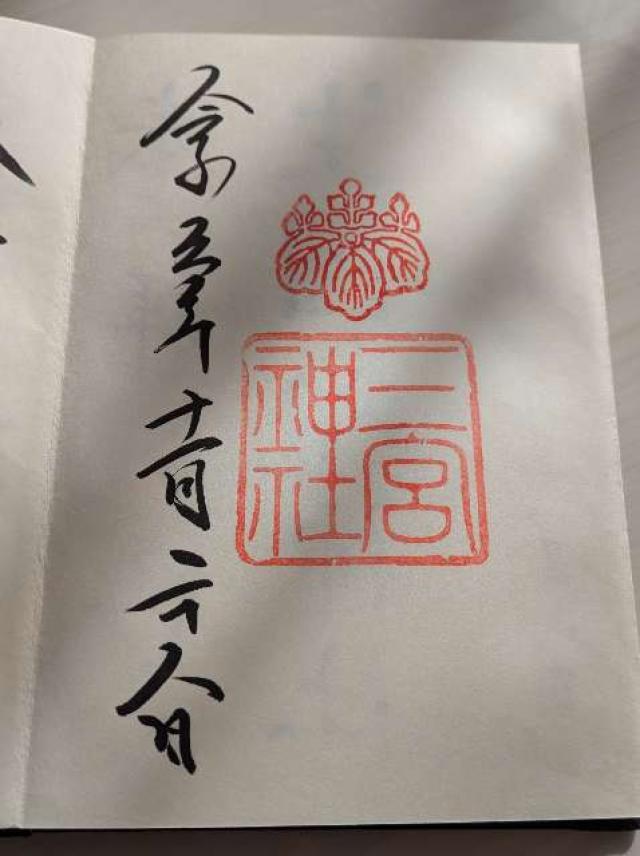 三宮
神社
令和五年十一月二十八日